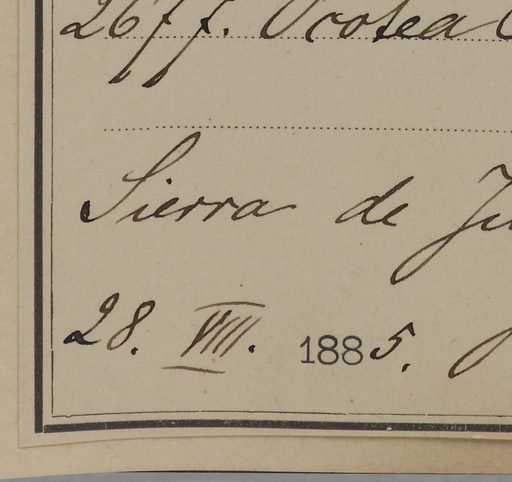 2677. Ocotea
Sierra de
28. VIII. 1885.